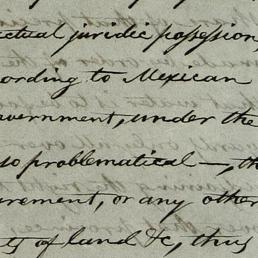 ctual juridic possession,
ording to Mexican
vernment, under the
so problematical—, th
urement, or any other
ts of land &c, thus